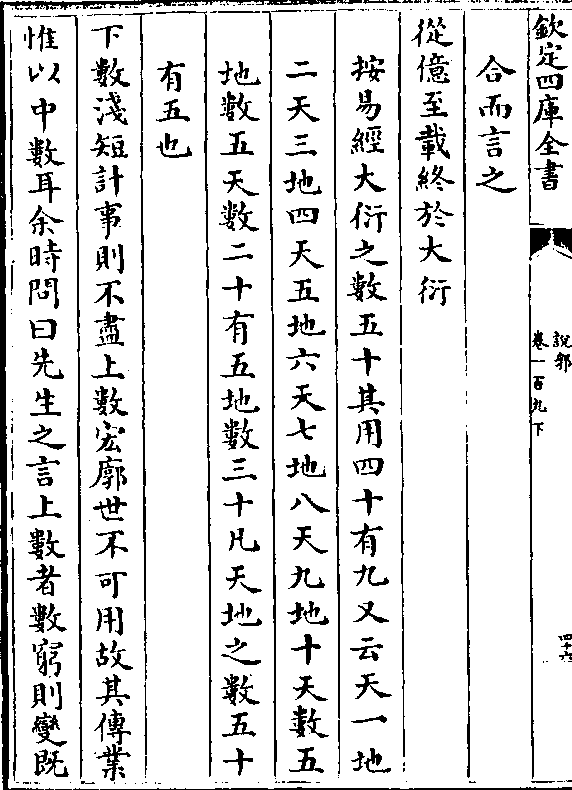 欽定四庫全書
說郛
卷一百九下
四十六
合而言之
從億至載終於大衍
按易經大衍之數五十其用四十有九又云天一地
二天三地四天五地六天七地八天九地十天數五
地數五天數二十有五地數三十凡天地之數五十
有五也
下數淺短計事則不盡上數宏廓世不可用故其傳業
惟以中數耳余時問曰先生之言上數者數窮則變既